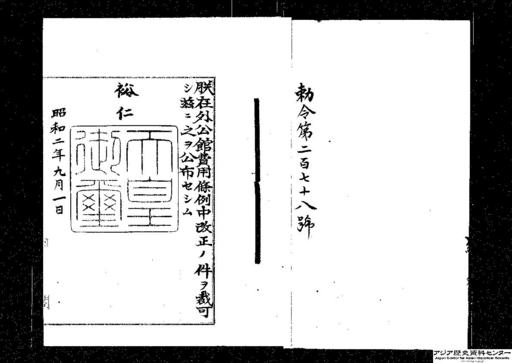 勅令第二百七十八號
朕在外公館費用條例中改正ノ件ヲ裁可
シ玆ニ之ヲ公布セシム
裕仁
天皇
御璽
昭和二年九月一日
アジア歴史資料センター
Japan Center for Asian Historical Records